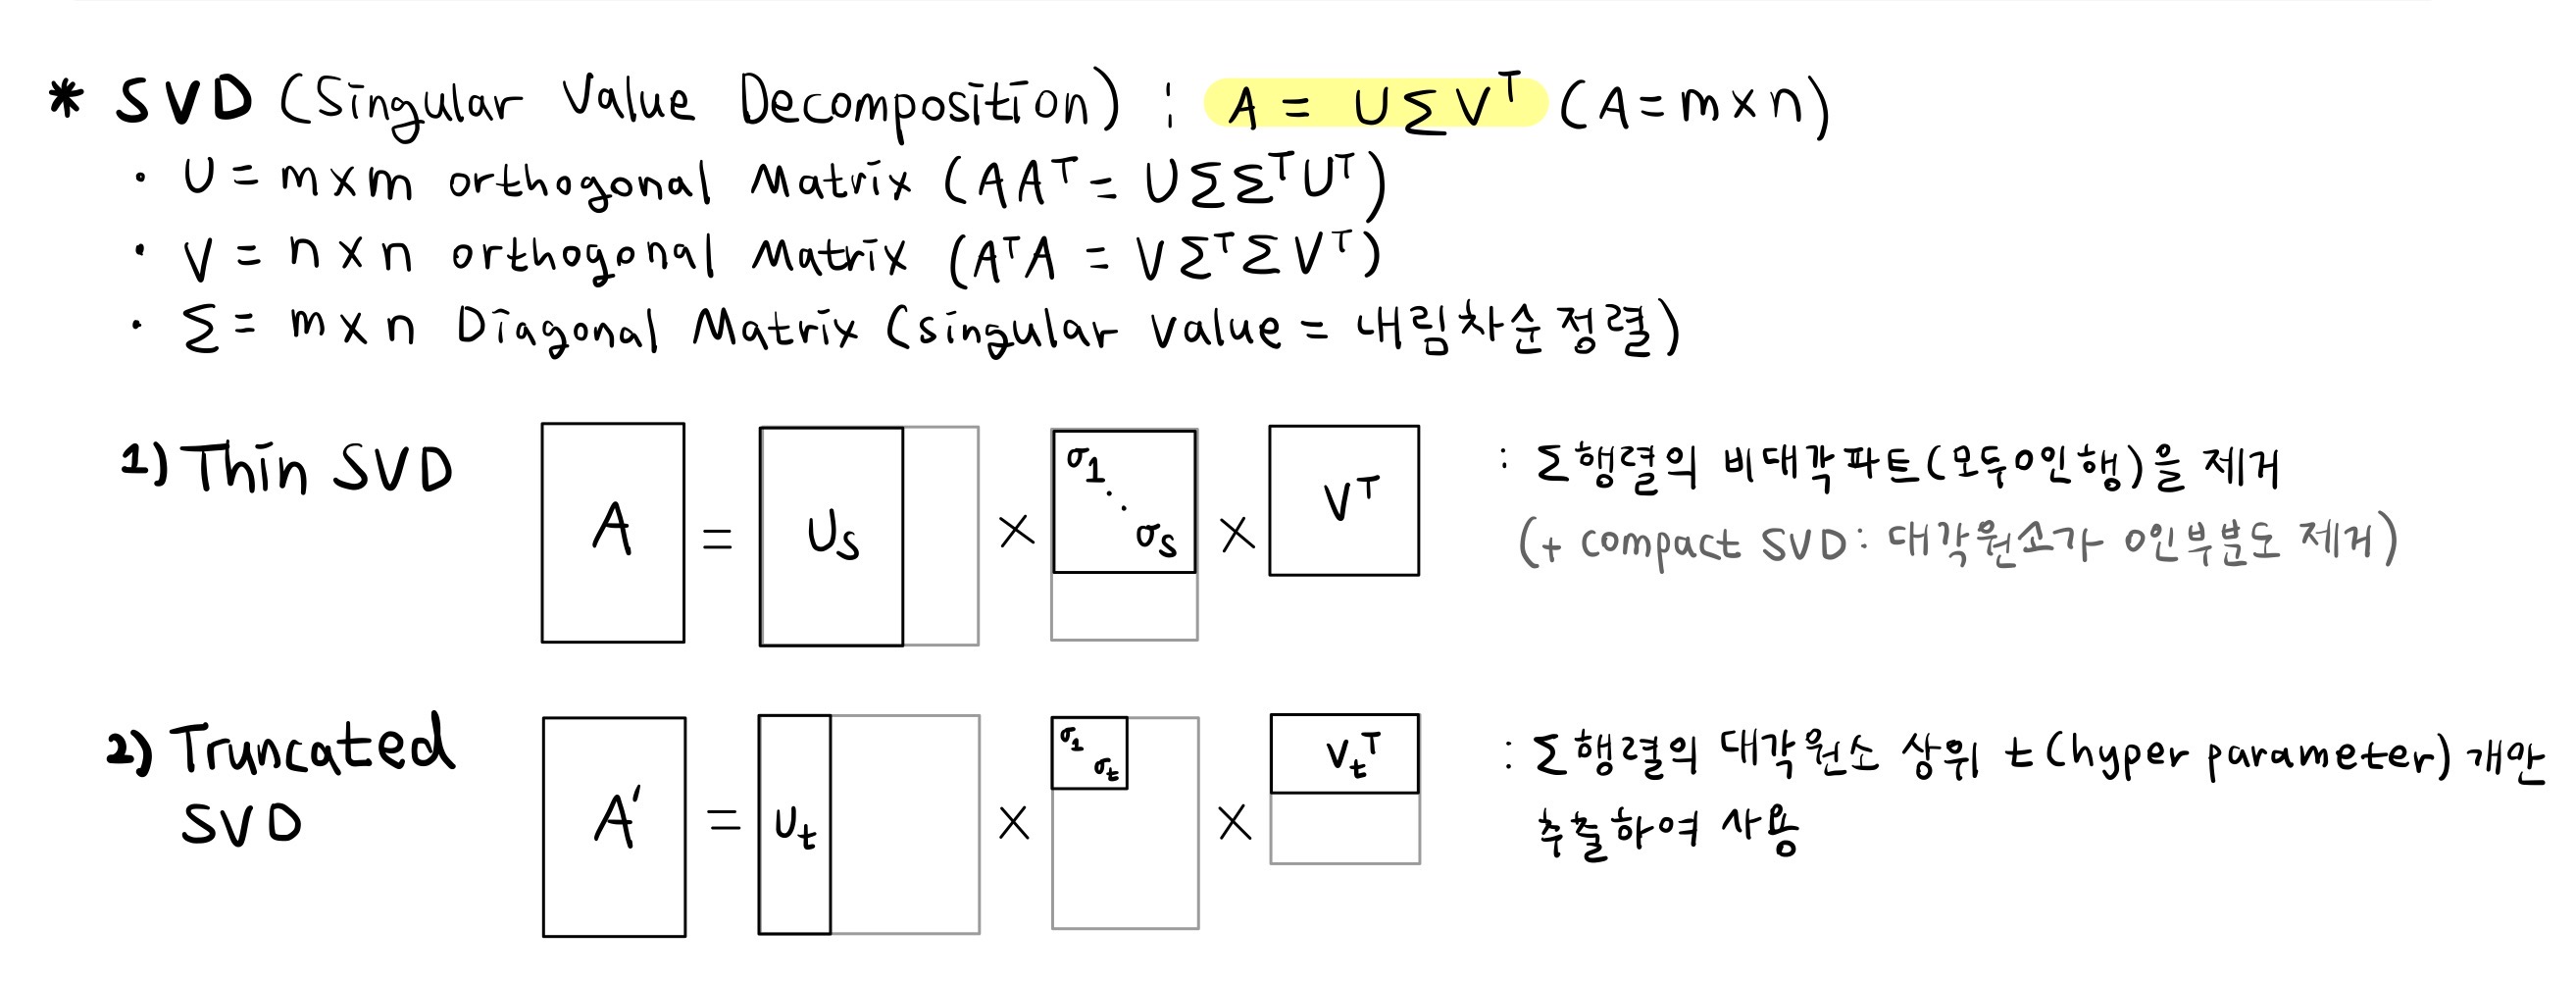 * SVD (Singular Value Decomposition) : A = UΣVᵀ (A=m×n)
· U = m×m orthogonal Matrix (AAᵀ = UΣΣᵀUᵀ)
· V = n×n orthogonal Matrix (AᵀA = VΣᵀΣVᵀ)
· Σ = m×n Diagonal Matrix (singular value = 내림차순 정렬)
1) Thin SVD
A = Uₛ × σ₁ ⋱ σₛ × Vᵀ
: Σ행렬의 비대각파트(모두0인행)을 제거
(+ compact SVD: 대각원소가 0인부분도 제거)
2) Truncated
SVD
A' = Uₜ × σ₁ σₜ × Vₜᵀ
: Σ행렬의 대각원소 상위 t(hyper parameter)개만
추출하여 사용